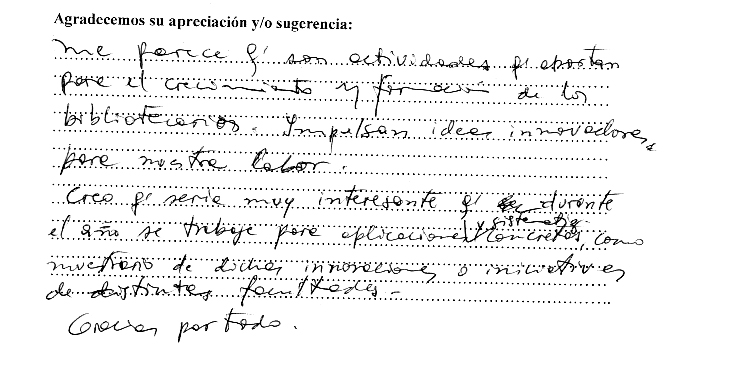 Agradecemos su apreciación y/o sugerencia:
Me parece q' son actividades q' aportan
para el crecimiento y formación de los
bibliotecarios. Impulsan ideas innovadoras
para nuestra labor.
Creo q' sería muy interesante q' durante
el año se trabaje para aplicaciones y concretas, como
muestrario de dichas innovaciones o iniciativas
de distintas facultades.
Gracias por todo.